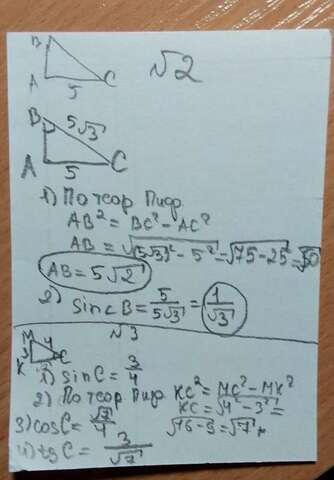 B
A
5
C
√2
B
5√3
A
5
C
1) По теор Пиф.
AB² = BC² - AC²
AB = √(5√3)² - 5² = √75-25 = √50
AB = 5√2
2) sin∠B = 5/5√3 = 1/√3
√3
M
4
3
K
C
1) sinC = 3/4
2) По теор Пиф. KC² = MC² - MK²
KC = √4² - 3² =
√16-9 = √7
3) cosC = √7/4
4) tgC = 3/√7